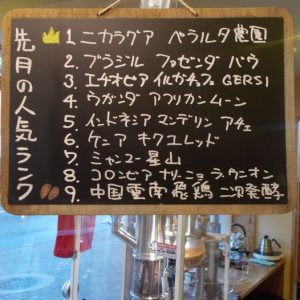 先月の人気ランク
1. ニカラグア ペラルタ農園
2. ブラジル ファゼンダ バウ
3. エチオピア イルガチェフ GERSI
4. ウガンダ アフリカンムーン
5. インドネシア マンデリン アチェ
6. ケニア キクユレッド
7. ミャンマー 星山
8. コロンビア ナリーニョ ラ・ウニオン
9. 中国雲南 飛鶏 二次発酵